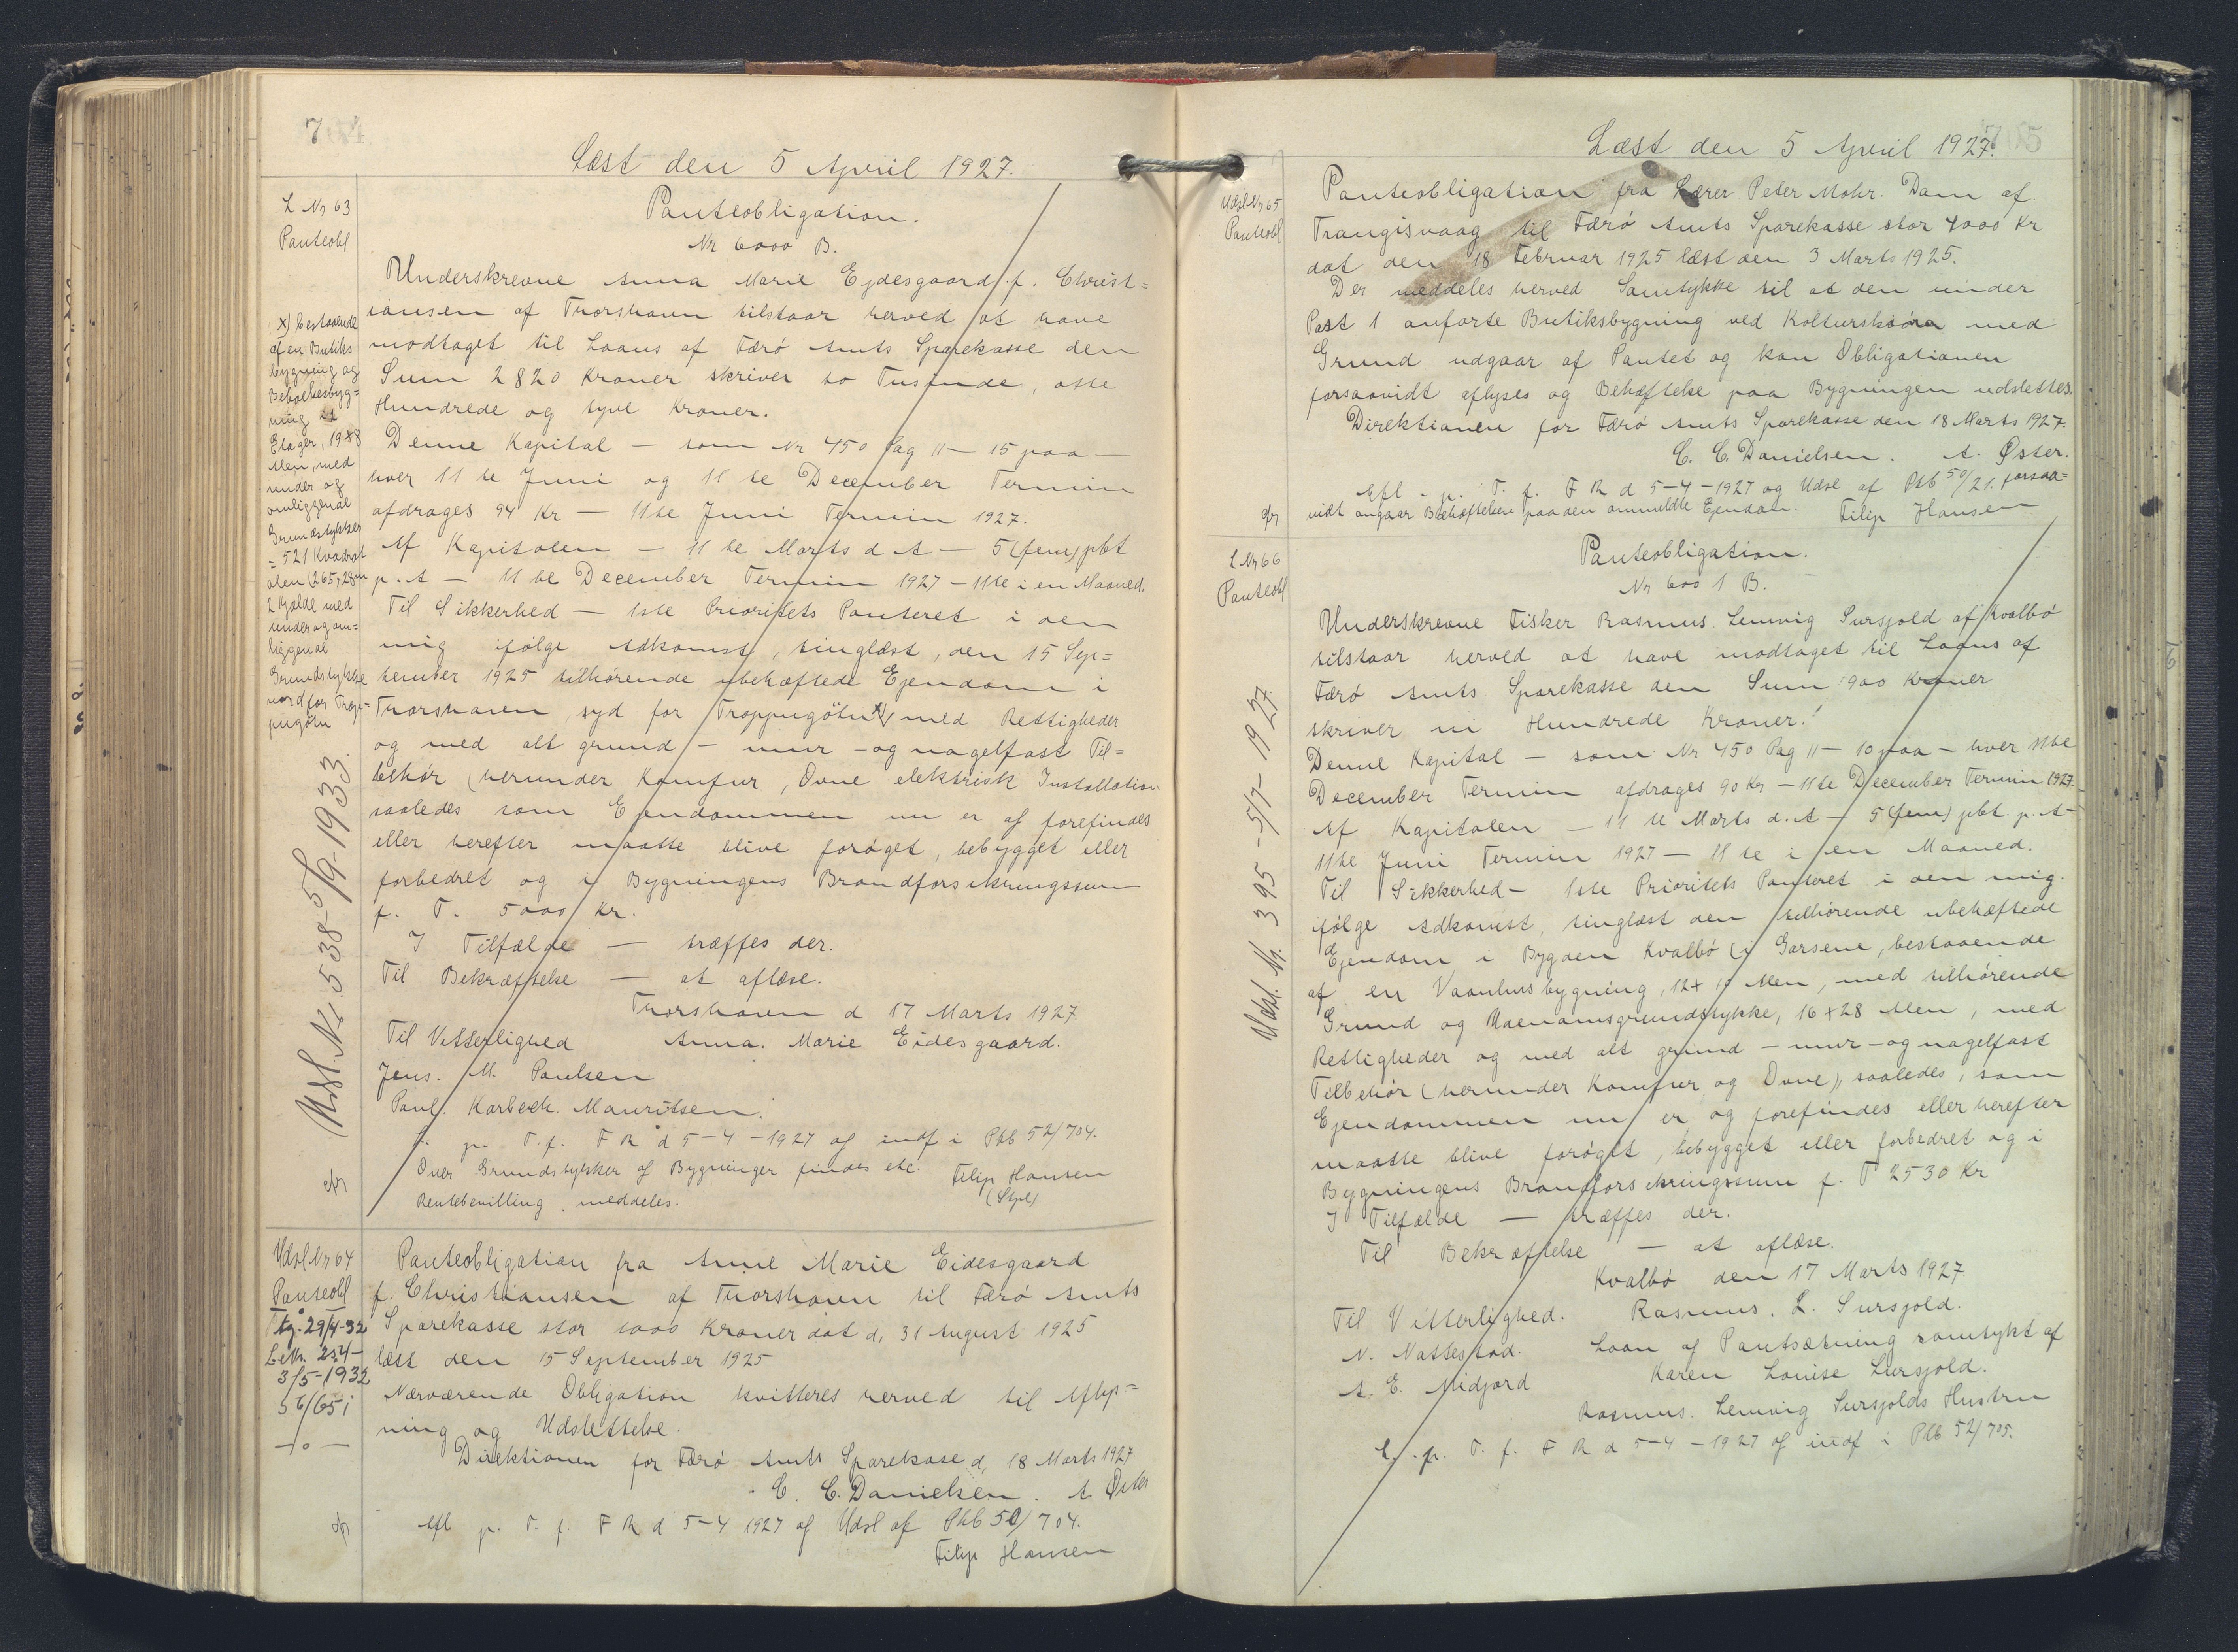 704
Læst den 5 April 1927.
L Nr 63
Panteobl
Panteobligation.
Nr 6000 B.
Underskrevne Anna Marie Ejdesgaard f. Christ=
iansen af Thorshavn tilstaar herved at have
modtaget til Laans af Færø Amts Sparekasse den
Sum 2820 Kroner skriver to Tusinde, otte
Hundrede og tyve Kroner.
Denne Kapital — som Nr 450 Pag 11 — 15 paa —
hver 11 te Juni og 11 te December Termin
afdrages 94 Kr — 11te Juni Termin 1927.
Af Kapitalen — 11 te Marts d A — 5 (fem) pbt
p. A — 11 te December Termin 1927 — 11te i en Maaned.
Til Sikkerhed — 1ste Prioritets Panteret i den
mig ifølge Adkomst, tinglæst, den 15 Sep=
tember 1925 tilhørende ubehæftede Ejendom i
Thorshavn, syd for Trappugøtu x) med Rettigheder
og med alt grund — mur — og nagelfast Til=
behør (herunder Komfur, Ovne elektrisk Installation
saaledes som Ejendommen nu er og forefindes
eller herefter maatte blive forøget, bebygget eller
forbedret og i Bygningens Brandforsikringssum
f. T. 5000 Kr.
I Tilfælde — træffes der.
Til Bekræftelse — at aflæse.
Thorshavn d 17 Marts 1927
Til Vitterlighed Anna. Marie Eidesgaard.
Jens. M. Paulsen
Paul. Karbech. Mauritsen.
L. p. T. f. F R d 5-4-1927 og indf i Pkb 52/704.
Over Grundstykker og Bygninger findes etc.
Rentebevilling meddeles.
Filip Hansen
(Stpl)
x) bestaaende
af en Butiks
bygning og
Beboelsesbyg=
ning
Etager, 19x8
Alen, med
under og
omliggende
Grundstykker
= 521 Kvadrat
alen (265,28
2 Hjalde med
under og om=
liggende
Grundstykke
nord for Trap=
pugøtu
Udsl. Nr. 538-5/9-1933.
Udsl Nr 64
Panteobl
Tg. 29/4-32
Beth. 254-
3/5-1932
56/651
—o—
Panteobligation fra Anne Marie Eidesgaard
f. Christiansen af Thorshavn til Færø Amts
Sparekasse stor 1000 Kroner dat d, 31 August 1925
læst den 15 September 1925
Nærværende Obligation kvitteres herved til Aflys=
ning og Udslettelse.
Direktionen for Færø Amts Sparekasse d, 18 Marts 1927
C. C. Danielsen. A. Øster
Afl p. T. f. F R d 5-4 1927 og Udsl af Pkb 50/704.
Filip Hansen
705
Læst den 5 April 1927.
Udsl Nr 65
Panteobl
Panteobligation fra Lærer Peter Mohr. Dam af
Trangisvaag til Færø Amts Sparekasse stor 4000 Kr
dat den 18 Februar 1925 læst den 3 Marts 1925.
Der meddeles herved Samtykke til at den under
Post 1 anførte Butiksbygning ved Kolturshaára med
Grund udgaar af Pantet og kan Obligationen
forsaavidt aflyses og Behæftelse paa Bygningen udslettes.
Direktionen for Færø Amts Sparekasse den 18 Marts 1927.
C. C. Danielsen. A. Øster.
Afl. p. T. f. F R d 5-4-1927 og Udsl af Pkb 50/21. forsaa=
vidt angaar Behæftelsen paa den ommeldte Ejendom. Filip Hansen
L Nr 66
Panteobl
Panteobligation.
Nr 6001 B.
Underskrevne Fisker Rasmus Lemvig Sursjold af Kvalbø
tilstaar herved at have modtaget til Laans af
Færø Amts Sparekasse den Sum 900 Kroner
skriver ni Hundrede Kroner.
Denne Kapital — som Nr 450 Pag 11 — 10 paa — hver 11te
December Termin afdrages 90 Kr — 11te December Termin 1927.
Af Kapitalen — 11 te Marts d. A — 5 (fem) pbt. p. A —
11te Juni Termin 1927 — 11 te i en Maaned.
Til Sikkerhed — 1ste Prioritets Panteret i den mig
ifølge Adkomst, tinglæst den tilhørende ubehæftede
Ejendom i Bygden Kvalbø (i Garsene, bestaaende
af en Vaanhusbygning, 12x Alen, med tilhørende
Grund og Udenomsgrundstykke, 16x28 Alen, med
Rettigheder og med alt grund — mur — og nagelfast
Tilbehør (herunder Komfur og Ovne), saaledes, som
Ejendommen nu er og forefindes eller herefter
maatte blive forøget, bebygget eller forbedret og i
Bygningens Brandforsikringssum f. T 2530 Kr
I Tilfælde — træffes der.
Til Bekræftelse — at aflæse.
Kvalbø den 17 Marts 1927
Til Vitterlighed. Rasmus. L. Sursjold.
N. Nattestad. Laan og Pantsætning samtykt af
A. E. Midjord Karen Louise Sursjold.
Rasmus. Lemvig Sursjolds Hustru
L. p. T. f. F R d 5-4-1927 og indf i Pkb 52/705.
Udsl. Nr. 395-5/7-1927.